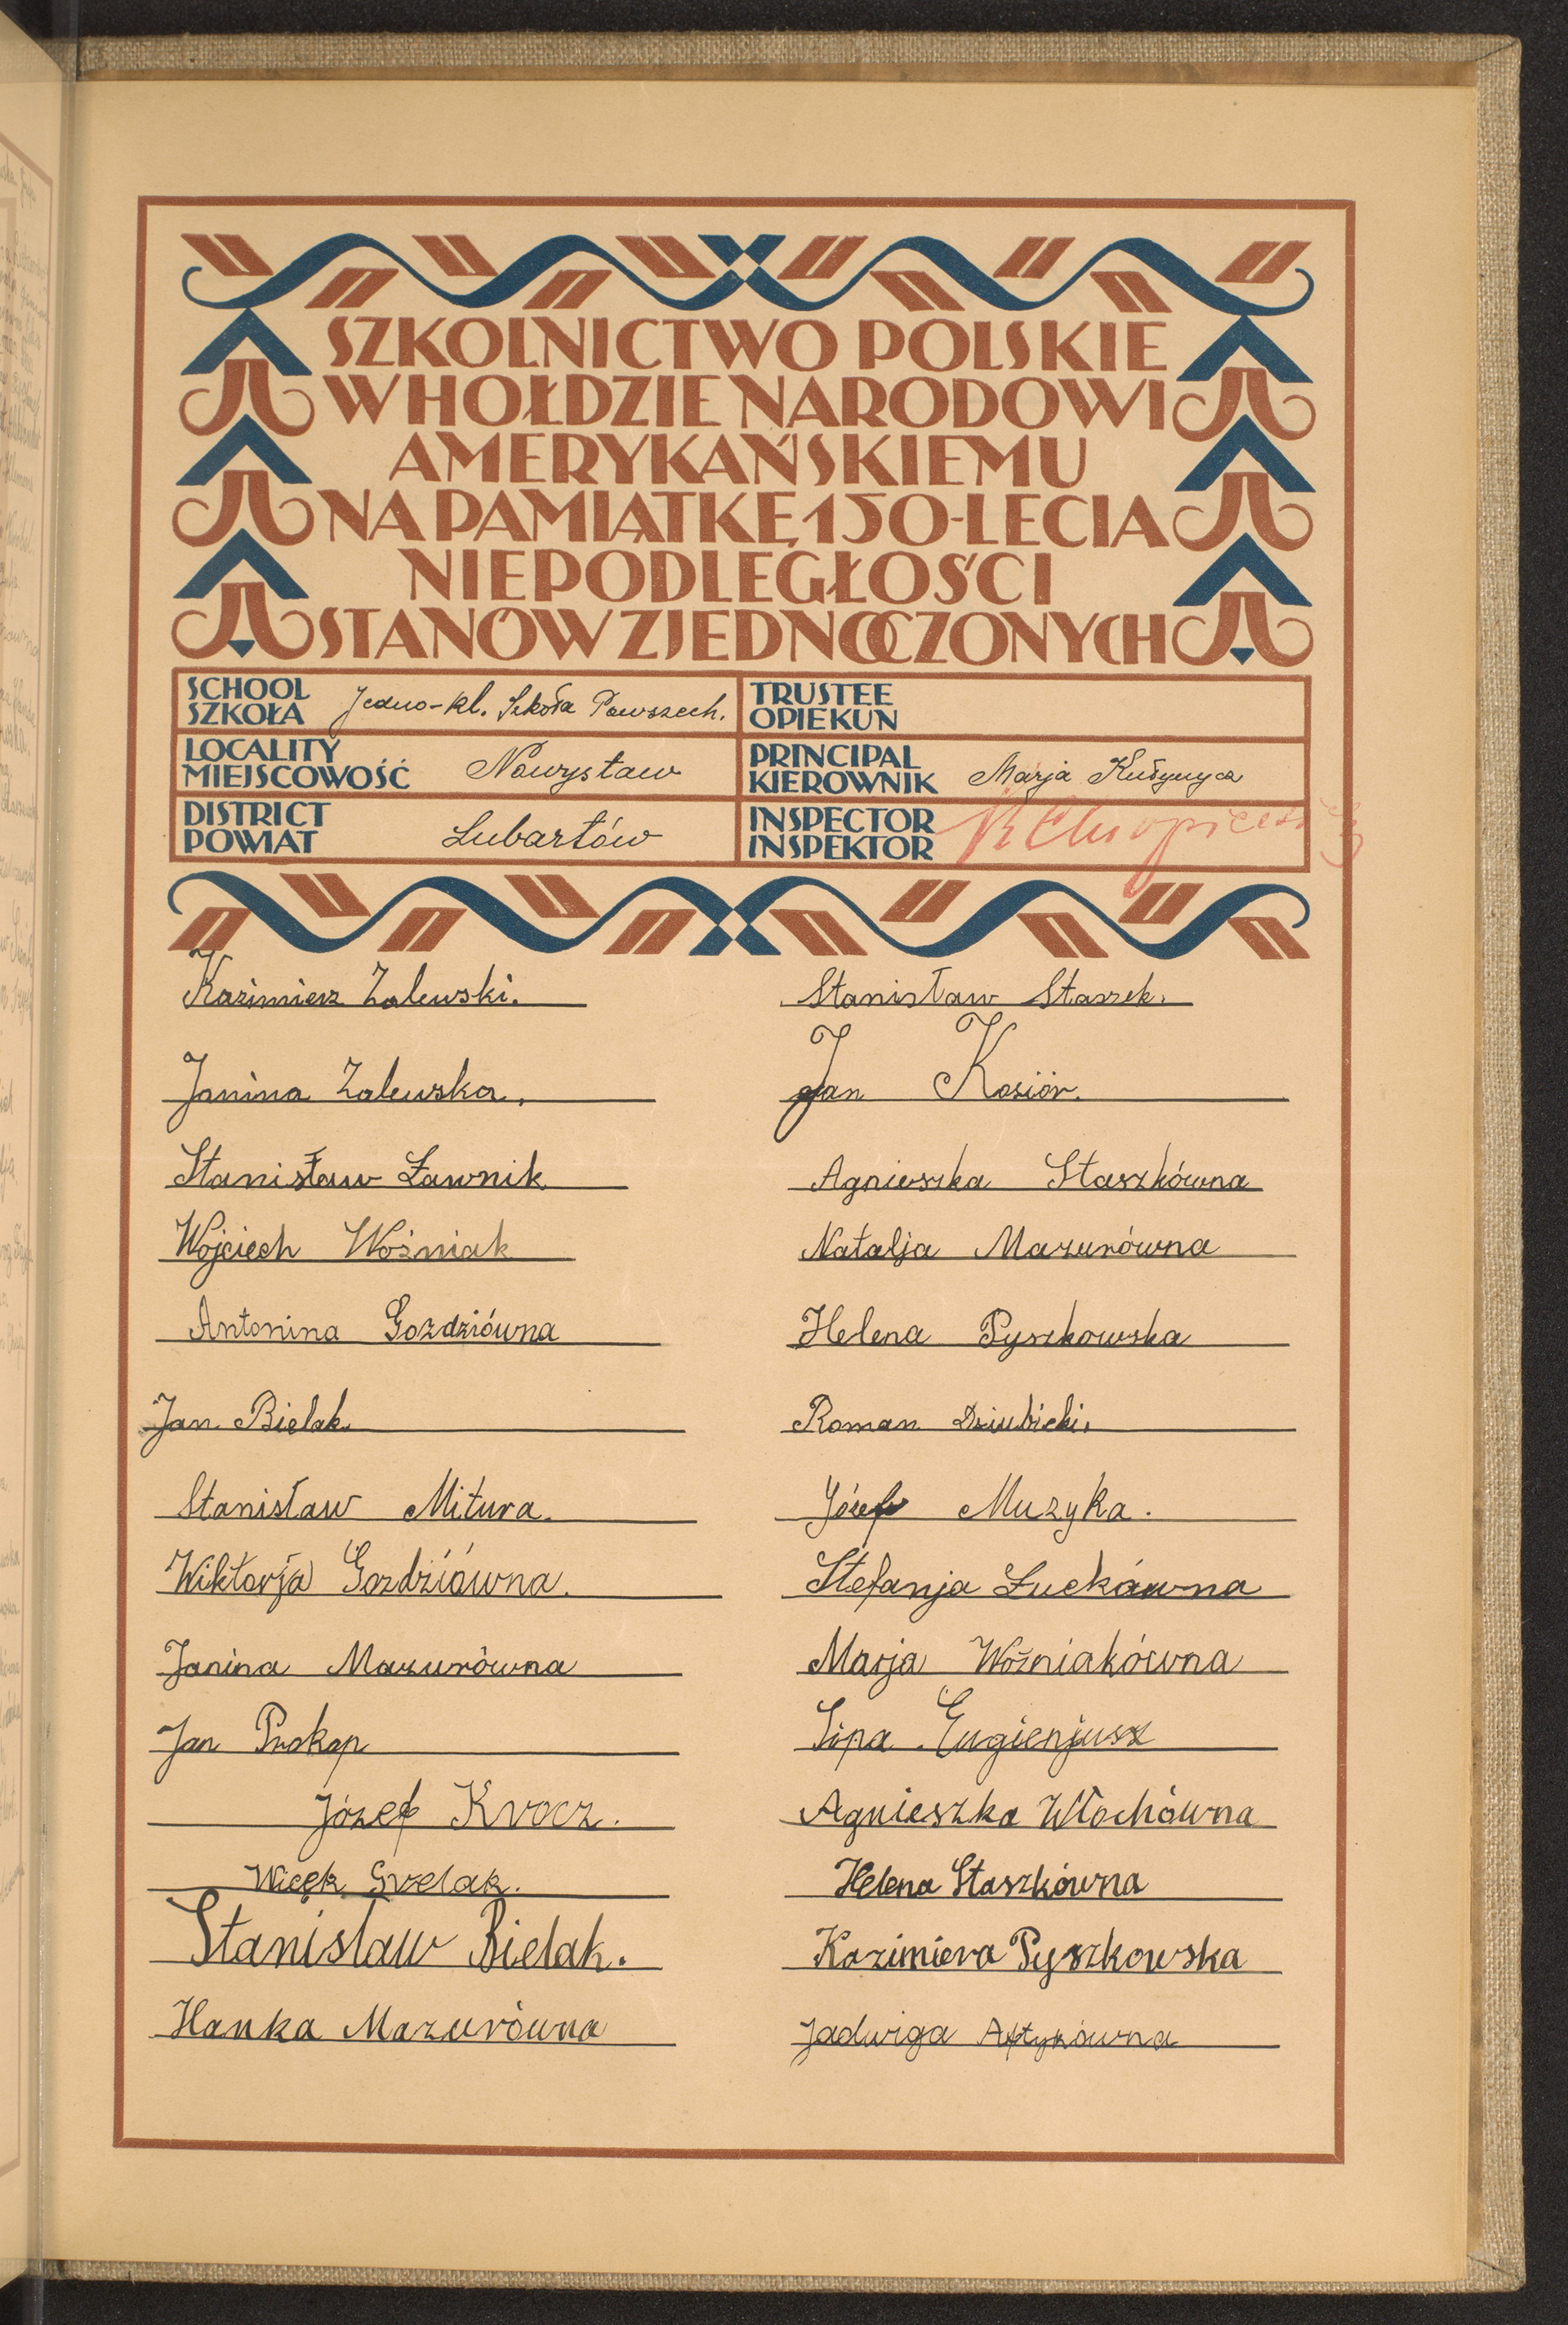 SZKOLNICTWO POLSKIE
W HOŁDZIE NARODOWI
AMERYKAŃSKIEMU
NA PAMIĄTKĘ 150-LECIA
NIEPODLEGŁOŚCI
STANÓW ZJEDNOCZONYCH
SCHOOL
SZKOŁA Jedno-kl. Szkoła Powszech.
TRUSTEE
OPIEKUN
LOCALITY
MIEJSCOWOŚĆ Nowystaw
PRINCIPAL
KIEROWNIK Marja
DISTRICT
POWIAT Lubartów
INSPECTOR
INSPEKTOR
Kazimierz Zalewski.
Janina Zalewska.
Stanisław Ławnik
Wojciech Woźniak
Antonina Gozdziówna
Jan Bielak.
Stanisław Mitura.
Wiktorja Gozdziówna.
Janina Mazurówna
Jan Prokop
Józef Krocz.
Wicęk Grzelak.
Stanisław Bielak.
Hanka Mazurówna
Stanisław Staszek.
Jan Kosiór.
Agnieszka Staszkówna
Natalja Mazurówna
Helena Pyszkowska
Roman Dziubicki.
Józef Muzyka.
Stefanja Łuckówna
Marja Woźniakówna
Lipa Eugienjusz
Agnieszka Włochówna
Helena Staszkówna
Kazimiera Pyszkowska
Jadwiga